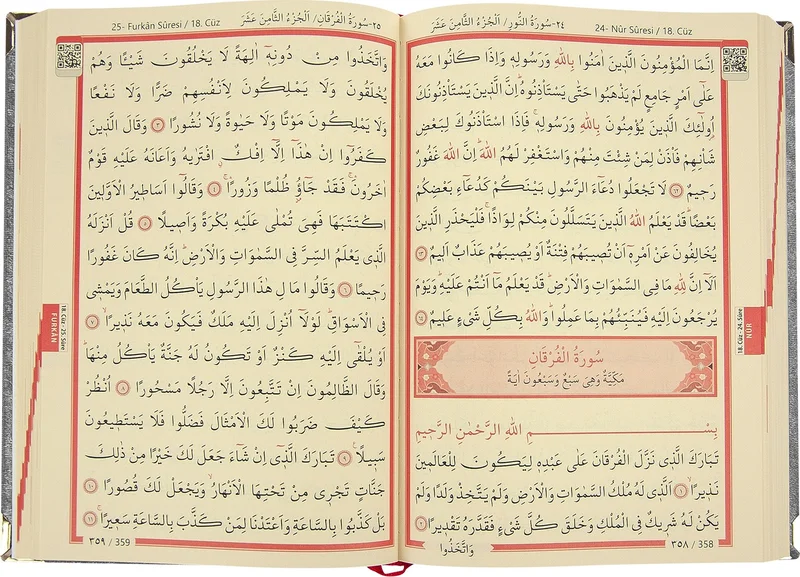 ٢٤-سُورَةُ النُّورِ/ اَلْجُزْءُ الثَّامِنَ عَشَرَ 24- Nûr Sûresi / 18. Cüz
اِنَّمَا الْمُؤْمِنُونَ الَّذٖينَ اٰمَنُوا بِاللّٰهِ وَرَسُولِهٖ وَاِذَا كَانُوا مَعَهُ
عَلٰٓى اَمْرٍ جَامِعٍ لَمْ يَذْهَبُوا حَتّٰى يَسْتَاْذِنُوهُؕ اِنَّ الَّذٖينَ يَسْتَاْذِنُونَكَ
اُو۬لٰٓئِكَ الَّذٖينَ يُؤْمِنُونَ بِاللّٰهِ وَرَسُولِهٖۚ فَاِذَا اسْتَاْذَنُوكَ لِبَعْضِ
شَاْنِهِمْ فَاْذَنْ لِمَنْ شِئْتَ مِنْهُمْ وَاسْتَغْفِرْ لَهُمُ اللّٰهَؕ اِنَّ اللّٰهَ غَفُورٌ
رَحٖيمٌ ﴿٦٢﴾ لَا تَجْعَلُوا دُعَٓاءَ الرَّسُولِ بَيْنَكُمْ كَدُعَٓاءِ بَعْضِكُمْ
بَعْضًاؕ قَدْ يَعْلَمُ اللّٰهُ الَّذٖينَ يَتَسَلَّلُونَ مِنْكُمْ لِوَاذًاۚ فَلْيَحْذَرِ الَّذٖينَ
يُخَالِفُونَ عَنْ اَمْرِهٖٓ اَنْ تُصٖيبَهُمْ فِتْنَةٌ اَوْ يُصٖيبَهُمْ عَذَابٌ اَلٖيمٌ ﴿٦٣﴾
اَلَٓا اِنَّ لِلّٰهِ مَا فِى السَّمٰوَاتِ وَالْاَرْضِؕ قَدْ يَعْلَمُ مَٓا اَنْتُمْ عَلَيْهِؕ وَيَوْمَ
يُرْجَعُونَ اِلَيْهِ فَيُنَبِّئُهُمْ بِمَا عَمِلُواؕ وَاللّٰهُ بِكُلِّ شَىْءٍ عَلٖيمٌ ﴿٦٤﴾
سُورَةُ الْفُرْقَانِ
مَكِّيَّةٌ وَهِىَ سَبْعٌ وَسَبْعُونَ اٰيَةً
بِسْمِ اللّٰهِ الرَّحْمٰنِ الرَّحٖيمِ
تَبَارَكَ الَّذٖى نَزَّلَ الْفُرْقَانَ عَلٰى عَبْدِهٖ لِيَكُونَ لِلْعَالَمٖينَ
نَذٖيرًاۙ ﴿١﴾ اَلَّذٖى لَهُ مُلْكُ السَّمٰوَاتِ وَالْاَرْضِ وَلَمْ يَتَّخِذْ وَلَدًا وَلَمْ
يَكُنْ لَهُ شَرٖيكٌ فِى الْمُلْكِ وَخَلَقَ كُلَّ شَىْءٍ فَقَدَّرَهُ تَقْدٖيرًا ﴿٢﴾
وَاتَّخَذُوا
٣٥٨ / 358
18. Cüz - 24. Sûre
NÛR
25- Furkân Sûresi / 18. Cüz ٢٥-سُورَةُ الْفُرْقَانِ/ اَلْجُزْءُ الثَّامِنَ عَشَرَ
وَاتَّخَذُوا مِنْ دُونِهٖٓ اٰلِهَةً لَا يَخْلُقُونَ شَيْـًٔا وَهُمْ
يُخْلَقُونَ وَلَا يَمْلِكُونَ لِاَنْفُسِهِمْ ضَرًّا وَلَا نَفْعًا
وَلَا يَمْلِكُونَ مَوْتًا وَلَا حَيٰوةً وَلَا نُشُورًا ﴿٣﴾ وَقَالَ الَّذٖينَ
كَفَرُٓوا اِنْ هٰذَٓا اِلَّٓا اِفْكٌۨ افْتَرٰيهُ وَاَعَانَهُ عَلَيْهِ قَوْمٌ
اٰخَرُونَۚ فَقَدْ جَٓاؤُ۫ ظُلْمًا وَزُورًاۚ ﴿٤﴾ وَقَالُٓوا اَسَاطٖيرُ الْاَوَّلٖينَ
اكْتَتَبَهَا فَهِىَ تُمْلٰى عَلَيْهِ بُكْرَةً وَاَصٖيلًا ﴿٥﴾ قُلْ اَنْزَلَهُ
الَّذٖى يَعْلَمُ السِّرَّ فِى السَّمٰوَاتِ وَالْاَرْضِؕ اِنَّهُ كَانَ غَفُورًا
رَحٖيمًا ﴿٦﴾ وَقَالُوا مَالِ هٰذَا الرَّسُولِ يَاْكُلُ الطَّعَامَ وَيَمْشٖى
فِى الْاَسْوَاقِؕ لَوْلَٓا اُنْزِلَ اِلَيْهِ مَلَكٌ فَيَكُونَ مَعَهُ نَذٖيرًاۙ ﴿٧﴾
اَوْ يُلْقٰٓى اِلَيْهِ كَنْزٌ اَوْ تَكُونُ لَهُ جَنَّةٌ يَاْكُلُ مِنْهَاؕ
وَقَالَ الظَّالِمُونَ اِنْ تَتَّبِعُونَ اِلَّا رَجُلًا مَسْحُورًا ﴿٨﴾ اُنْظُرْ
كَيْفَ ضَرَبُوا لَكَ الْاَمْثَالَ فَضَلُّوا فَلَا يَسْتَطٖيعُونَ
سَبٖيلًا۟ ﴿٩﴾ تَبَارَكَ الَّذٖٓى اِنْ شَٓاءَ جَعَلَ لَكَ خَيْرًا مِنْ ذٰلِكَ
جَنَّاتٍ تَجْرٖى مِنْ تَحْتِهَا الْاَنْهَارُۙ وَيَجْعَلْ لَكَ قُصُورًا ﴿١٠﴾
بَلْ كَذَّبُوا بِالسَّاعَةِ وَاَعْتَدْنَا لِمَنْ كَذَّبَ بِالسَّاعَةِ سَعٖيرًاۚ ﴿١١﴾
٣٥٩ / 359
18. Cüz - 25. Sûre
FURKÂN